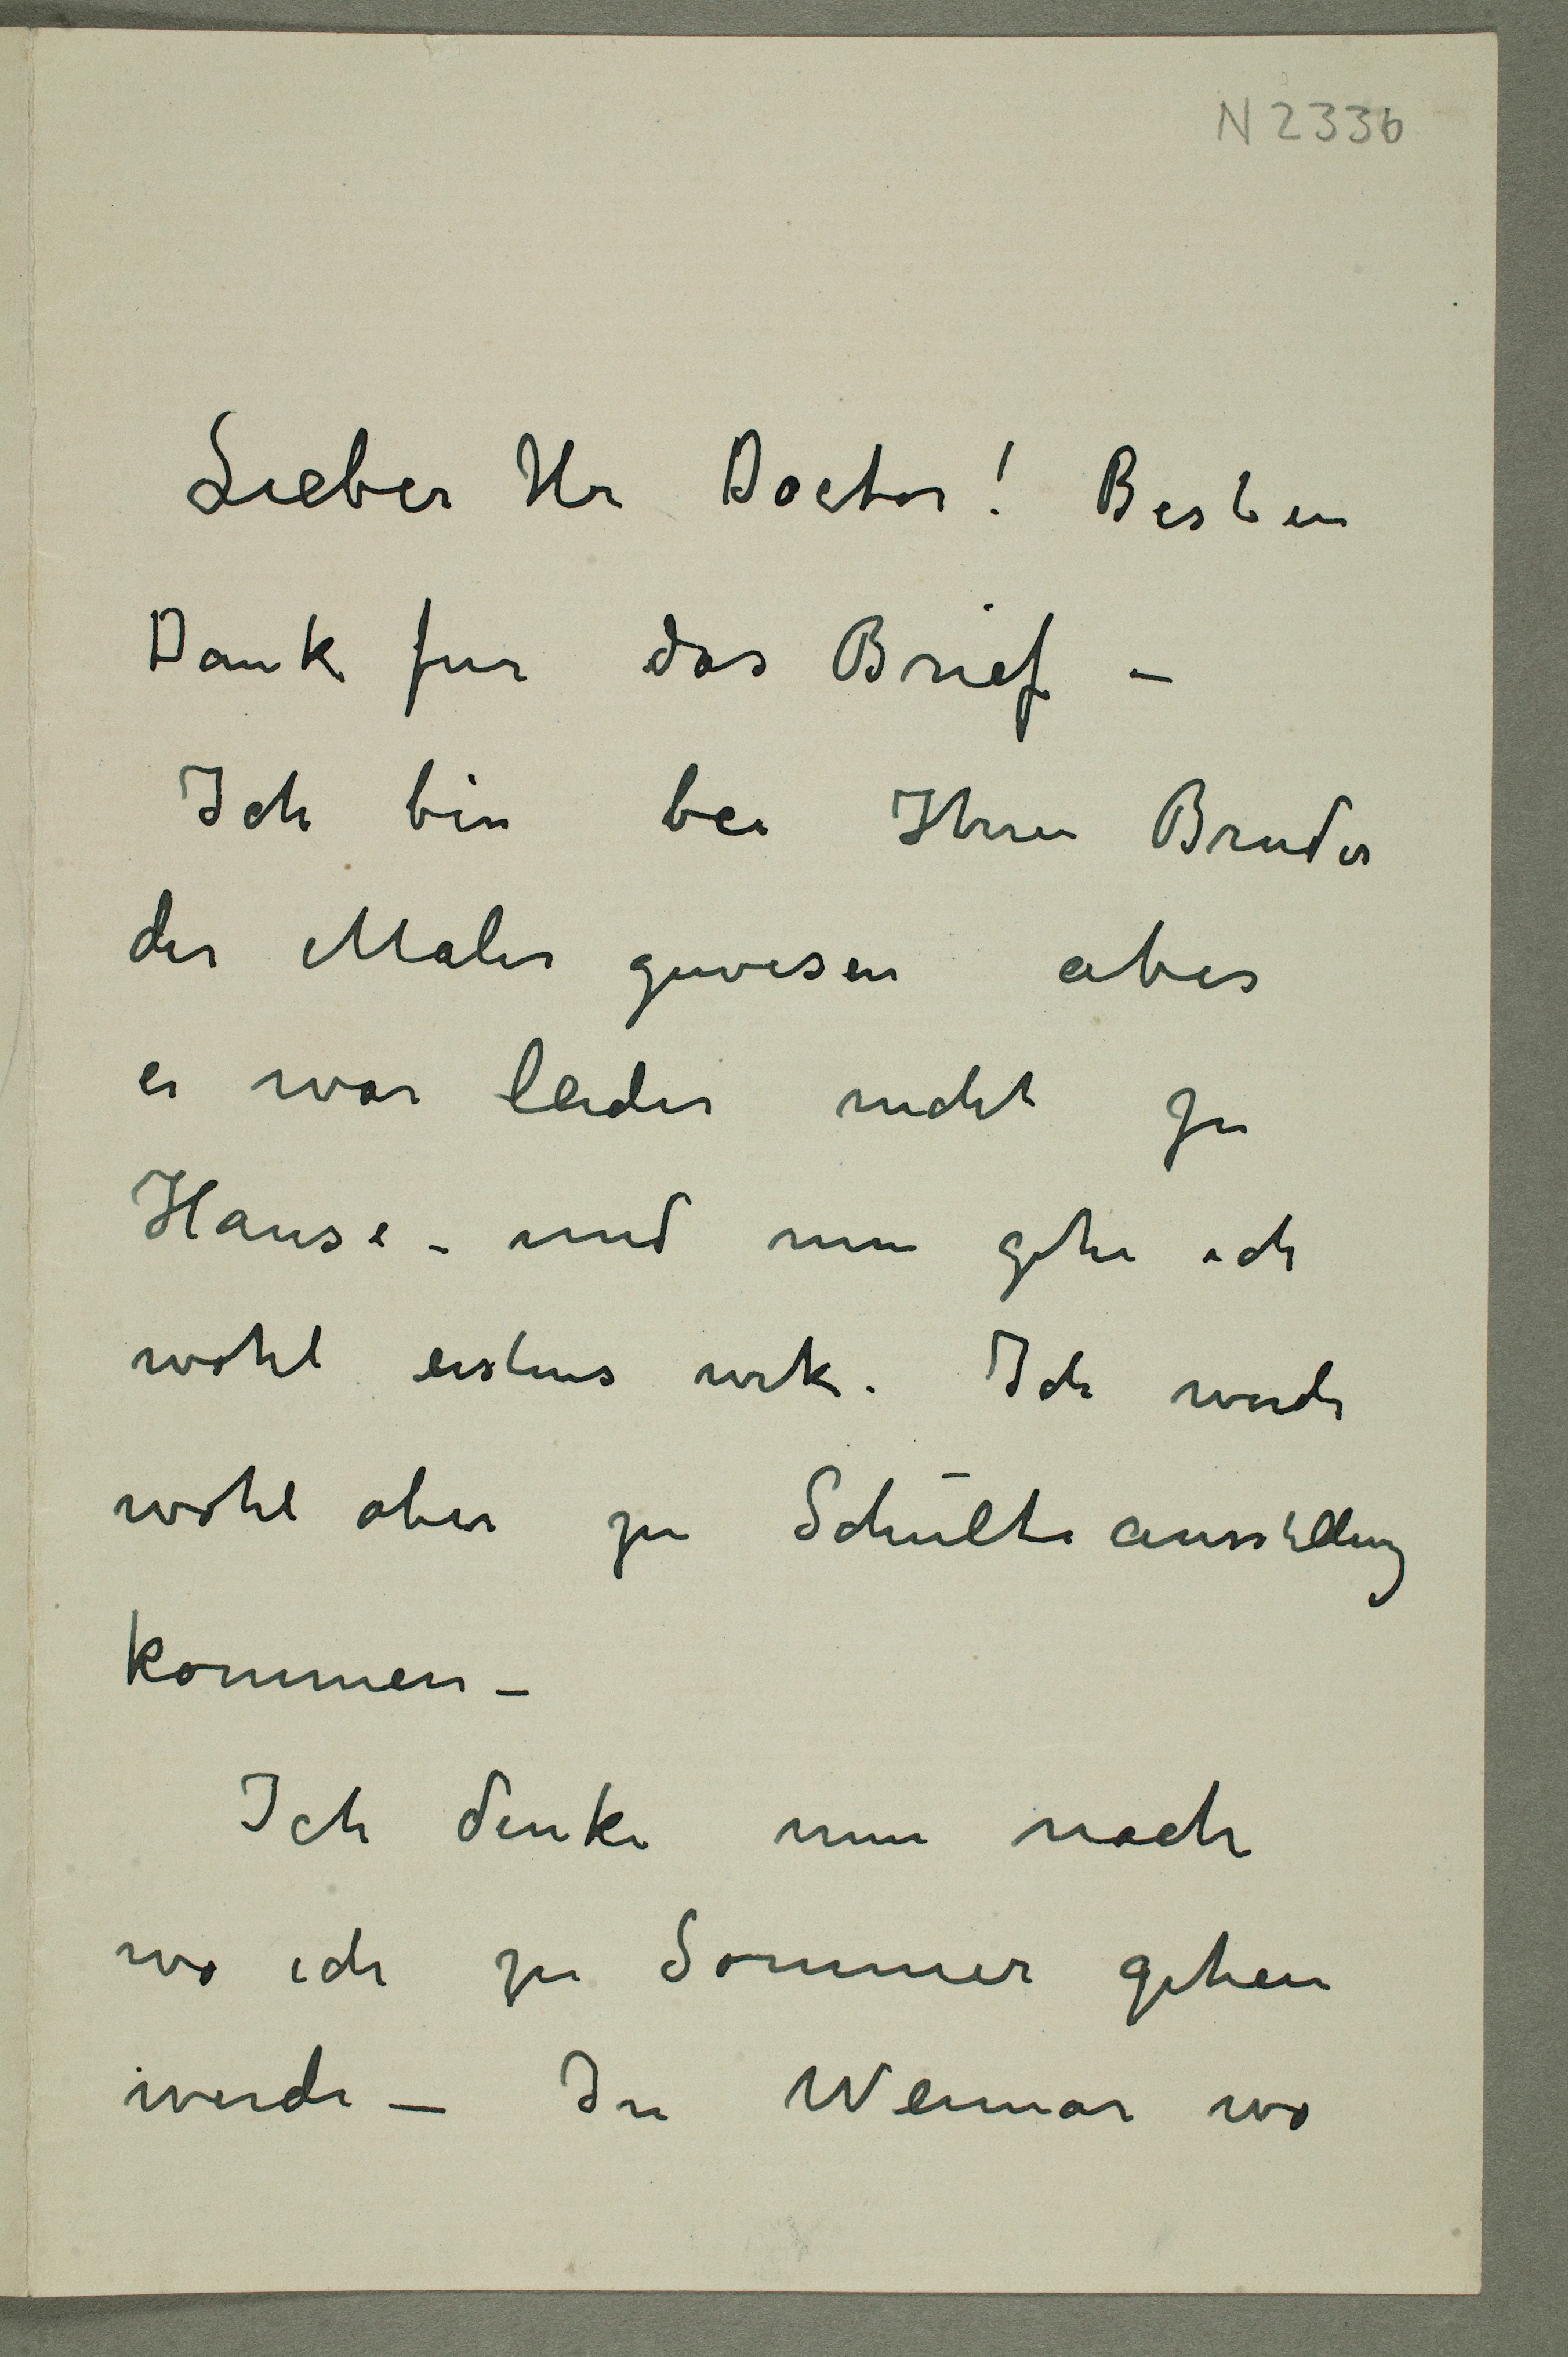 N 2336
Lieber Hr Doctor! Besten
Dank fur das Brief –
Ich bin bei Ihren Bruder
der Maler gewesen aber
er war leider nicht zu
Hause – und nun gehe ich
wohl erstens wek. Ich werde
wohl aber zu Schulteausstellung
kommen –
Ich denke nun nach
wo ich zu Sommer gehen
werde – In Weimar wo